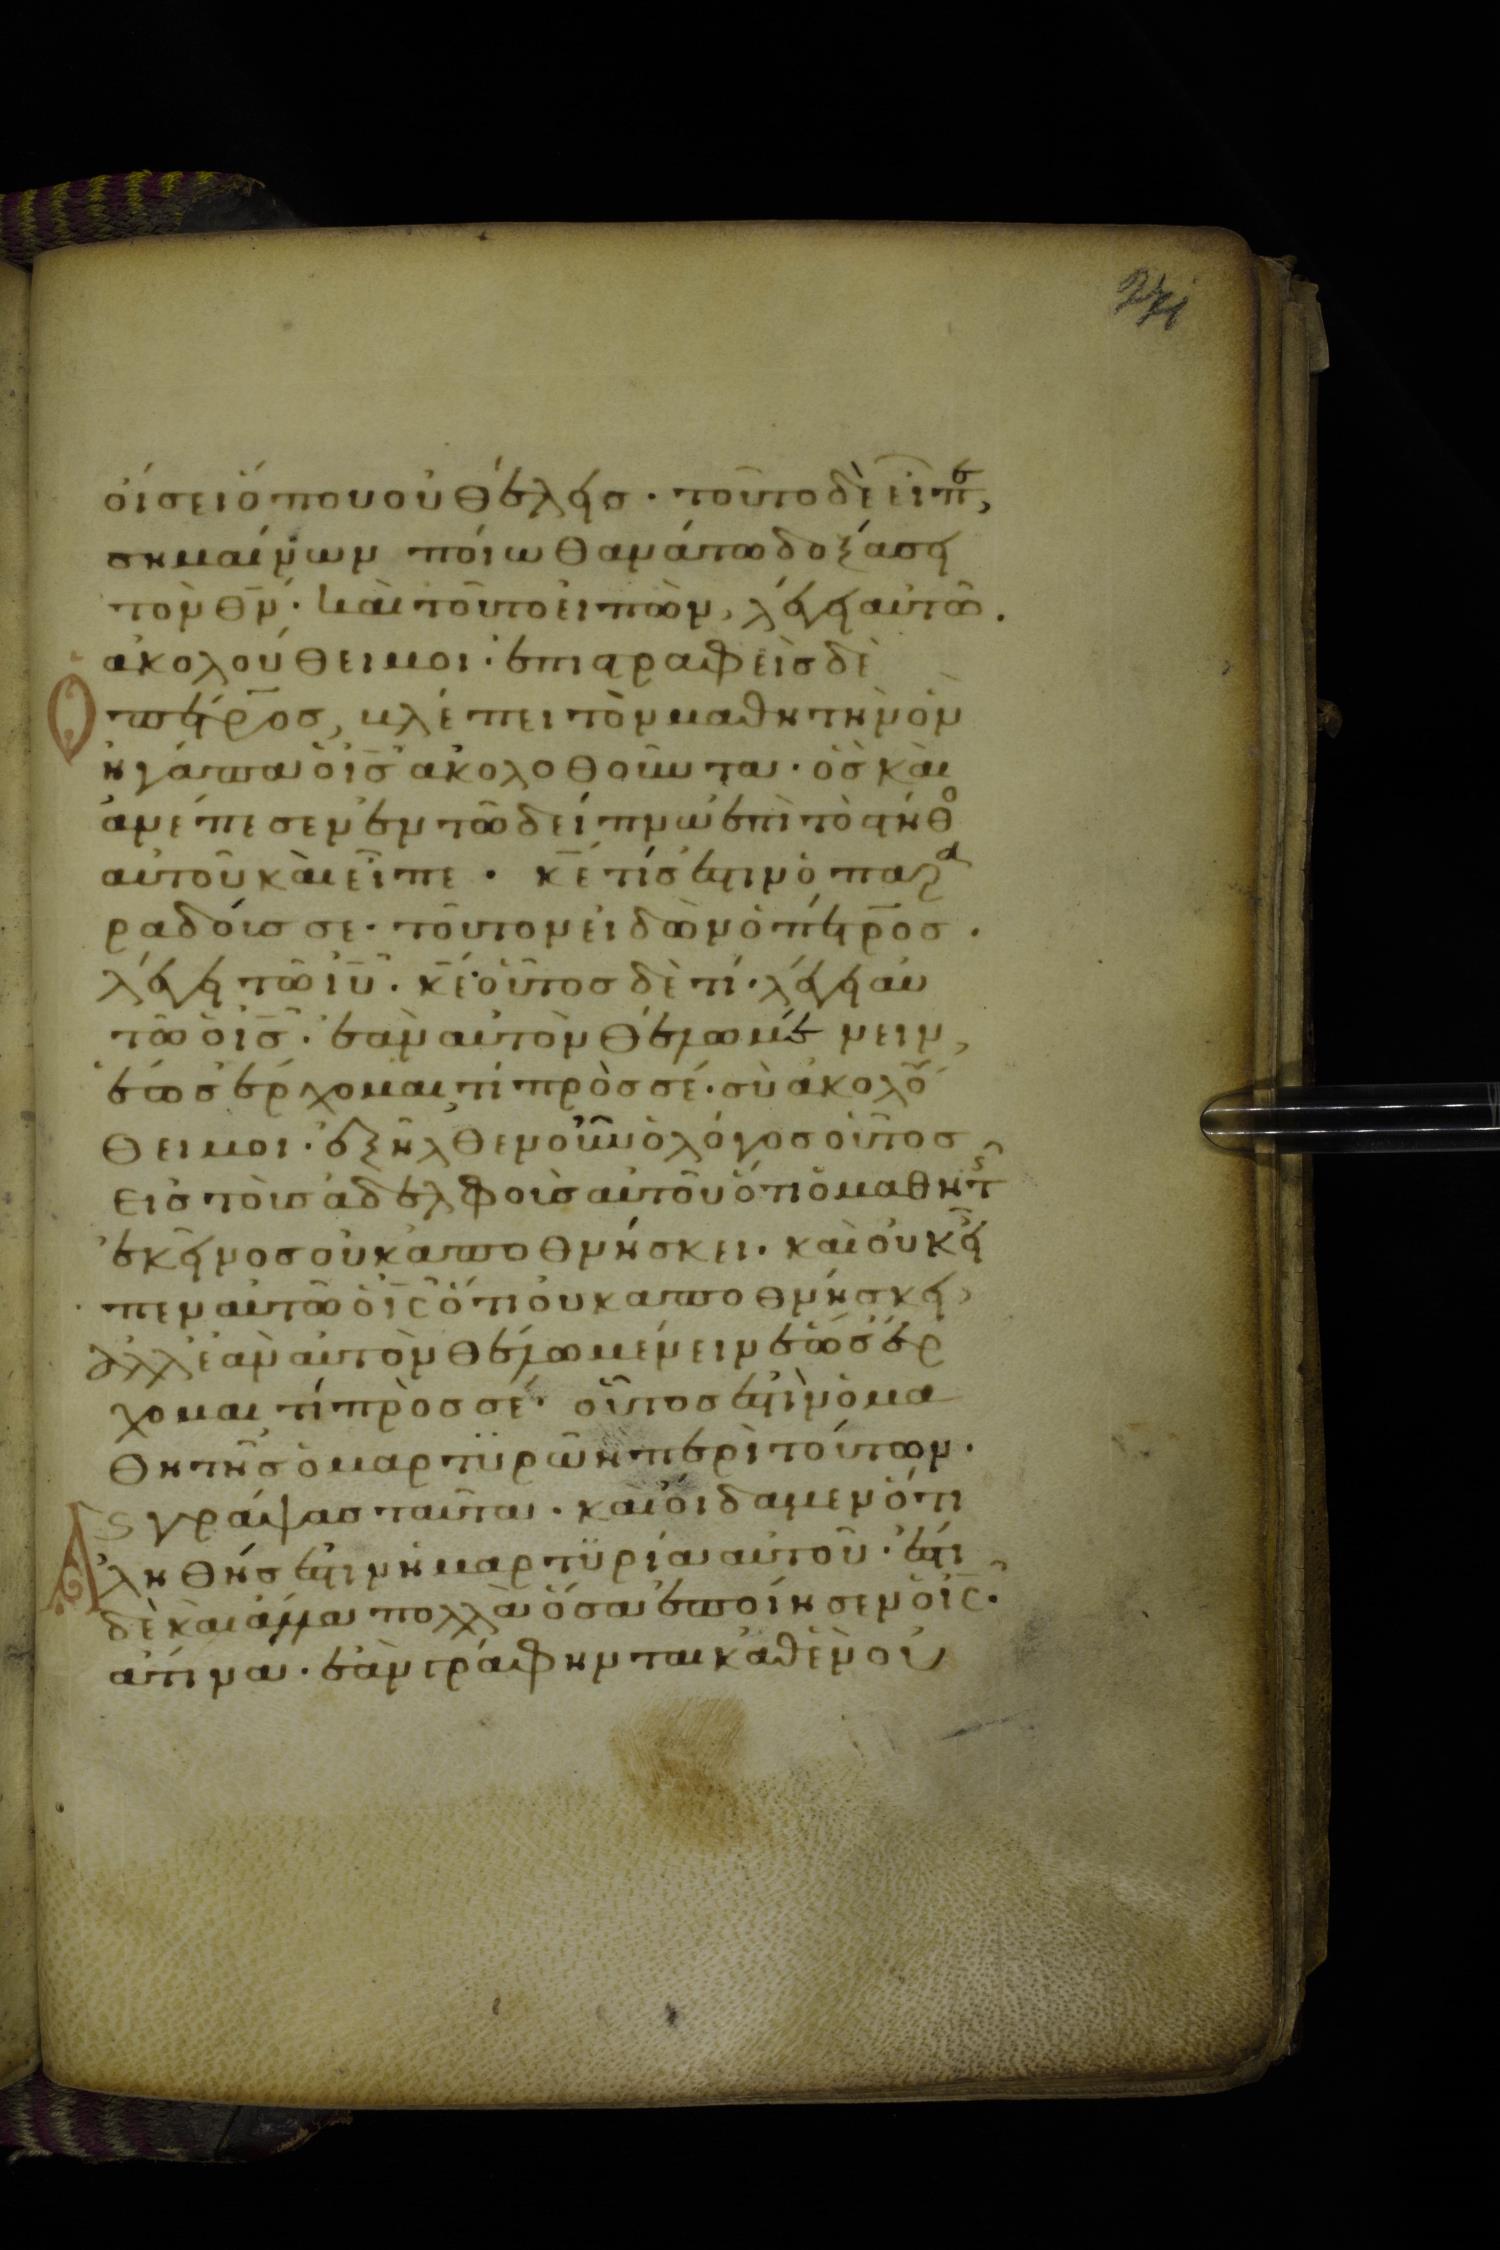 271
οίσει ὅπου οὐ θέλεις · τοῦτο δὲ εἶπε,
σημαίνων ποίω θανάτω δοξάσει
τὸν θν · καὶ τοῦτο εἰπὼν, λέγει αὐτῶ ·
ἀκολούθει μοι · ἐπιστραφεὶς δὲ
Ὁ πέτρος, βλέπει τὸν μαθητὴν ὃν
ἠγάπα ὁ ις ἀκολοθοῦντα · ὃς καὶ
ἀνέπεσεν ἐν τῶ δείπνω ἐπὶ τὸ στῆθο
αὐτοῦ καὶ εἶπε · κε τίς ἐστιν ὁ πα
ραδούς σε · τοῦτον εἰδὼν ὁ πέτρος ·
λέγει τῶ ιυ · κε οὗτος δὲ τί · λέγει αὐ
τῶ ὁ ις · ἐὰν αὐτὸν θέλω μένειν,
ἕως ἔρχομαι, τί πρὸς σέ · σὺ ἀκολού
θει μοι · ἐξῆλθεν οὖν ὁ λόγος οὗτος
εἰς τοὺς ἀδελφοὺς αὐτοῦ ὅτι ὁ μαθητς
ἐκεῖνος οὐκ ἀποθνήσκει · καὶ οὐκ εἶ
πεν αὐτῶ ὁ ις ὅτι οὐκ αποθνήσκει,
ἀλλ ἐὰν αὐτὸν θέλω μένειν ἕως ἔρ
χομαι, τί πρὸς σέ · οὗτος ἐστὶν ὁ μα
θητῆς ὁ μαρτϋρῶν περὶ τούτων ·
ϛ γράψας ταῦτα · καὶ οίδαμεν ὅτι
Ἀληθής ἐστιν ἡ μαρτϋρία αὐτοῦ · ἔστι
δὲ καὶ ἄλλα πολλὰ ὅσα ἐποίησεν ὁ ις ·
ἅτινα · ἐὰν γράφηνται καθ ἓν οὐ